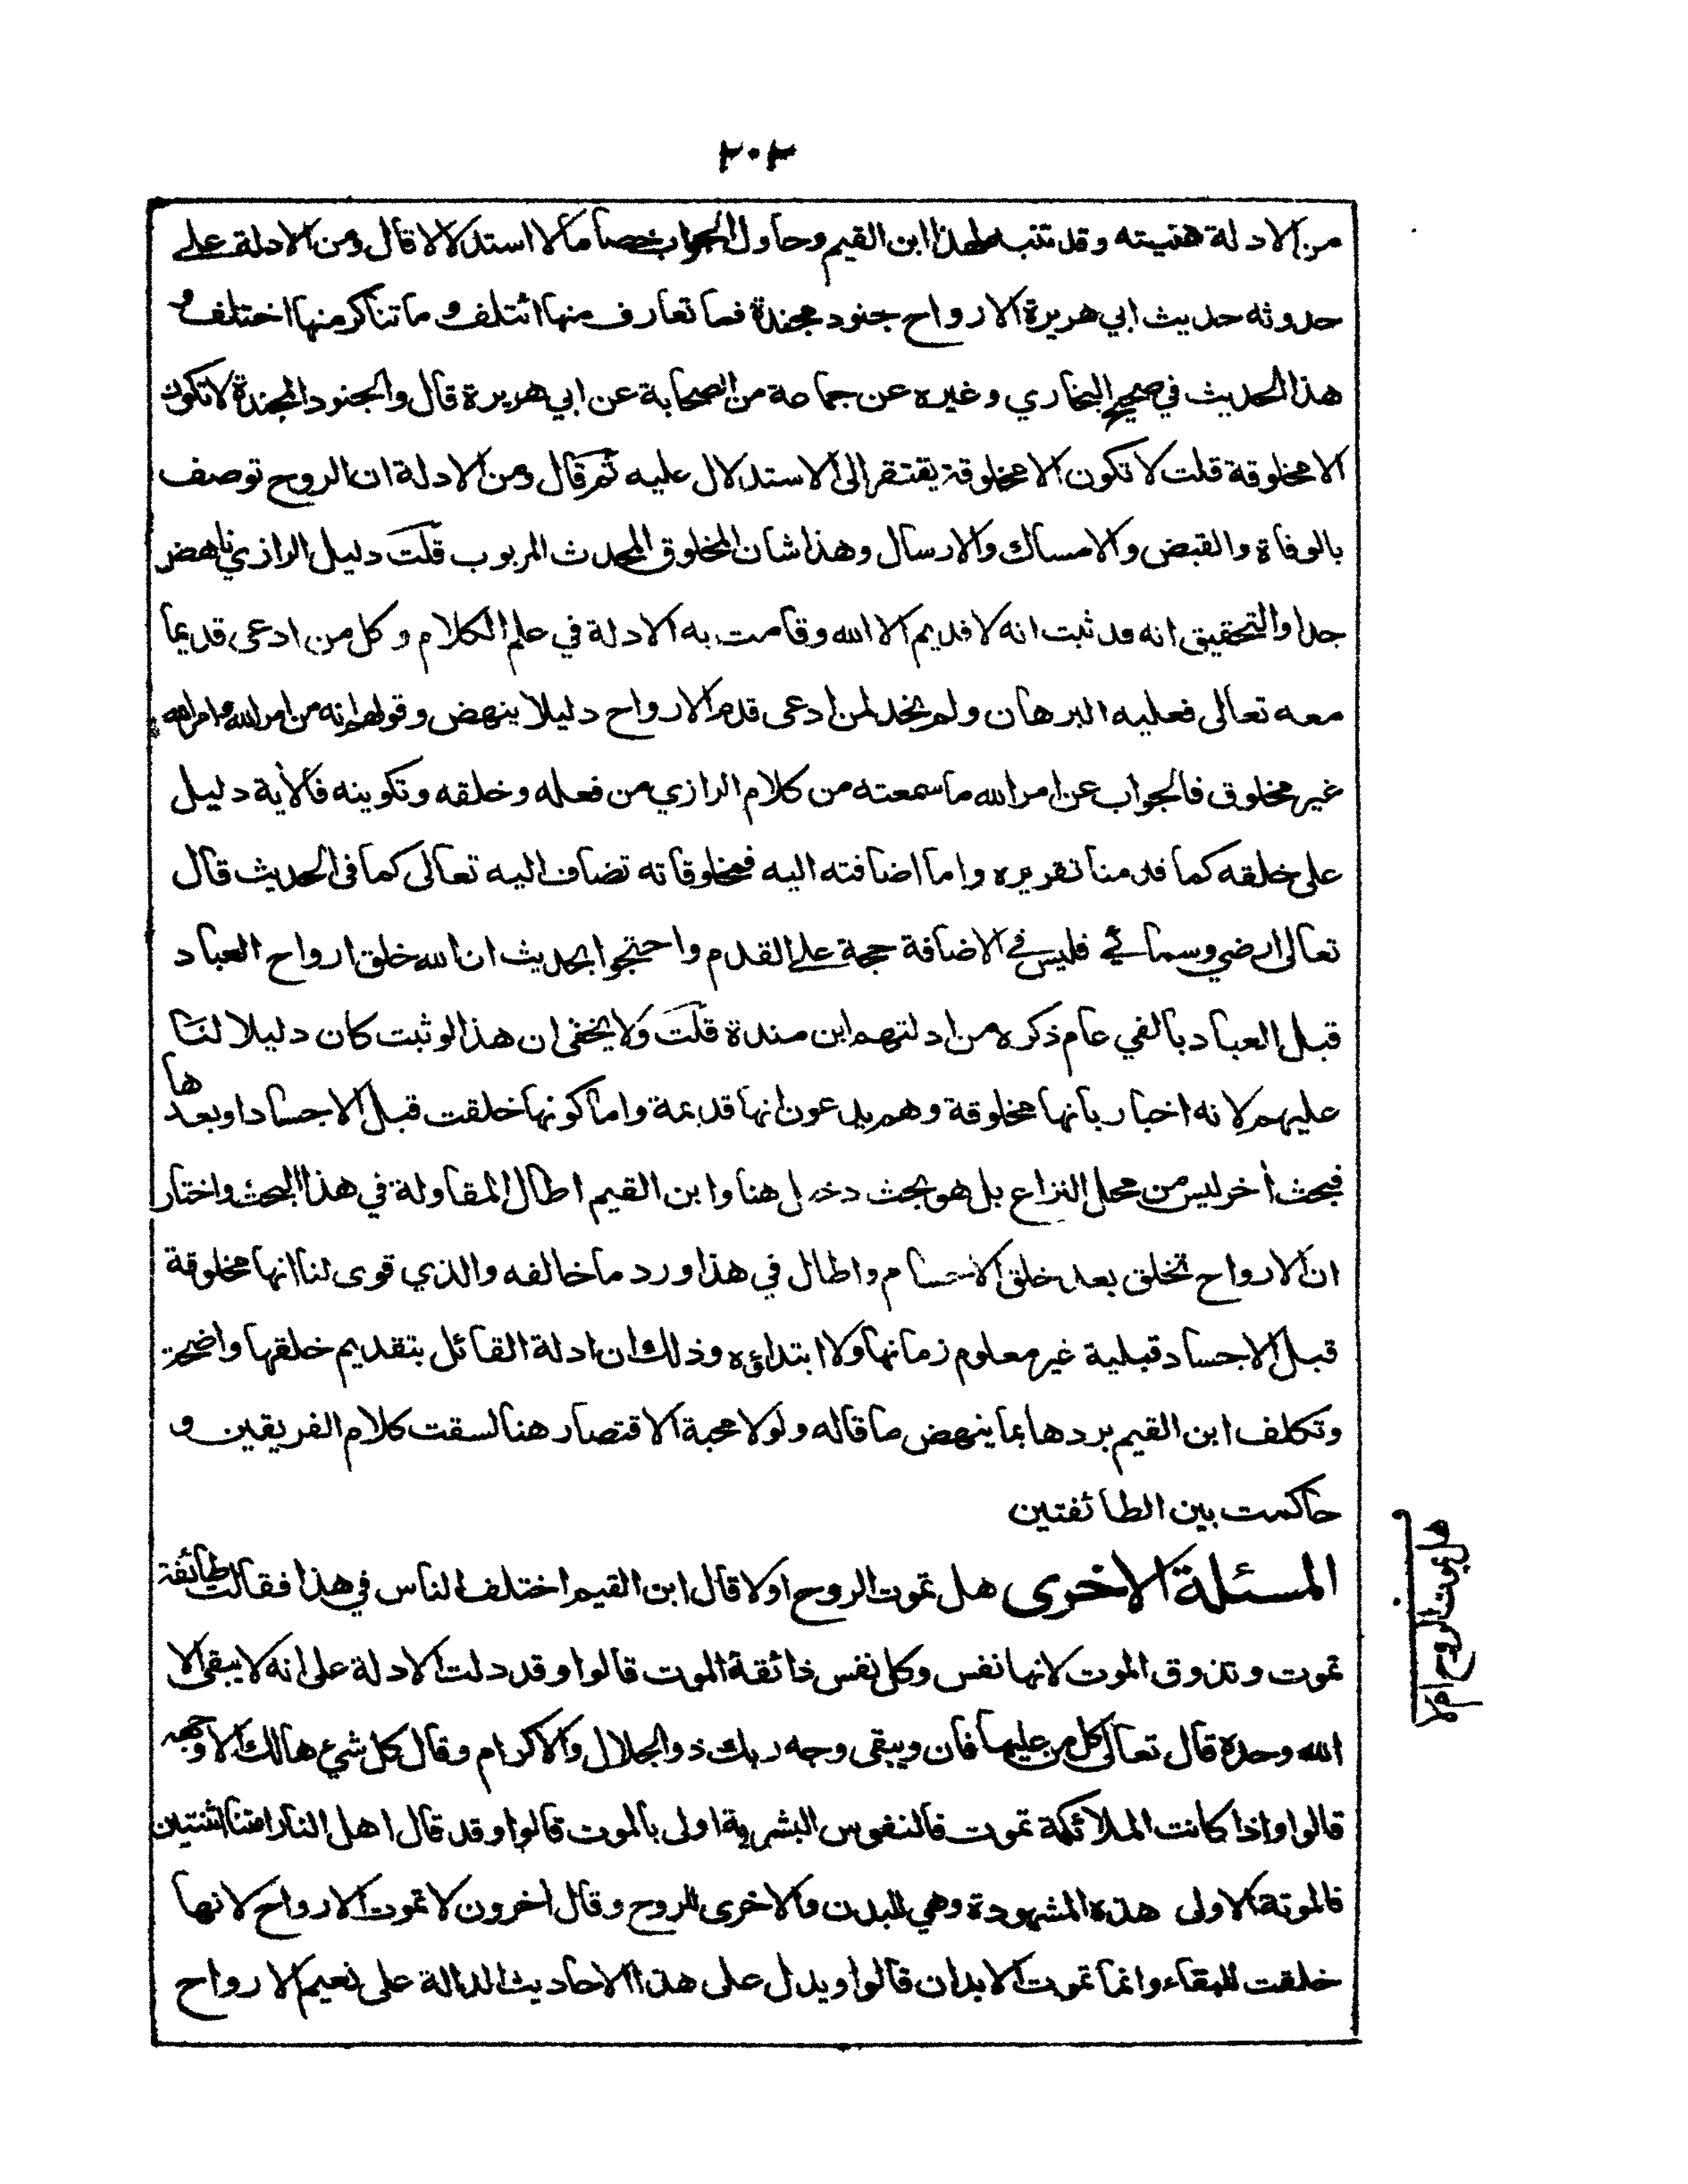 ٢٠٢
من الادلة هنيئته وقد تنبه لهذا ابن القيم وحاول الجواب خصاما لا استدلالا قال ومن الادلة على
حدوثه حديث ابي هريرة الارواح جنود مجندة فما تعارف منها ائتلف وما تناكر منها اختلف و
هذا الحديث في صحيح البخاري وغيره عن جماعة من الصحابة عن ابي هريرة قال والجنود المجندة لا تكون
الا مخلوقة قلت لا تكون الا مخلوقة يفتقر الى الاستدلال عليه ثم قال ومن الادلة ان الروح توصف
بالوفاة والقبض والامساك والارسال وهذا شان المخلوق المحدث المربوب قلت دليل الرازي ناهض
جدا والتحقيق انه قد ثبت انه لا قديم الا الله وقامت به الادلة في علم الكلام وكل من ادعى قديما
معه تعالى فعليه البرهان ولم نجد لمن ادعى قدم الارواح دليلا ينهض وقولهم انه من امر الله وامر الله
غير مخلوق فالجواب عن امر الله ما سمعته من كلام الرازي من فعله وخلقه وتكوينه فالأية دليل
على خلقه كما قدمنا تقريره واما اضافته اليه فمخلوقاته تضاف اليه تعالى كما في الحديث قال
تعالى ارضي وسمائي فليس في الاضافة حجة على القدم واحتجوا بحديث ان الله خلق ارواح العباد
قبل العباد بالفي عام ذكره من ادلتهم ابن مندة قلت ولا يخفى ان هذا لو ثبت كان دليلا لنا
عليهم لانه اخبار بانها مخلوقة وهم يدعون انها قديمة واما كونها خلقت قبل الاجساد او بعدها
فبحث أخر ليس من محل النزاع بل هو بحث دخيل هنا وابن القيم اطال المقاولة في هذا البحث واختار
ان الارواح تخلق بعد خلق الاجسام واطال في هذا ورد ما خالفه والذي قوى لنا انها مخلوقة
قبل الاجساد قبلية غير معلوم زمانها ولا ابتداؤه وذلك ان ادلة القائل بتقديم خلقها واضحة
وتكلف ابن القيم بردها بما ينهض ما قاله ولولا محبة الاقتصار هنا لسقت كلام الفريقين و
حاكمت بين الطائفتين
المسئلة الاخرى هل تموت الروح اولا قال ابن القيم اختلف الناس في هذا فقالت طائفة
تموت وتذوق الموت لانها نفس وكل نفس ذائقة الموت قالوا وقد دلت الادلة على انه لا يبقى الا
الله وحده قال تعالى كل من عليها فان ويبقى وجه ربك ذو الجلال والاكرام وقال كل شيء هالك الا وجهه
قالوا واذا كانت الملائكة تموت فالنفوس البشرية اولى بالموت قالوا وقد قال اهل النار امتنا اثنتين
فالموتة الاولى هذه المشهودة وهي للبدن والاخرى للروح وقال اخرون لا تموت الارواح لانها
خلقت للبقاء وانما تموت الابدان قالوا ويدل على هذا الاحاديث الدالة على نعيم الارواح
هل يموت الروح ام لا